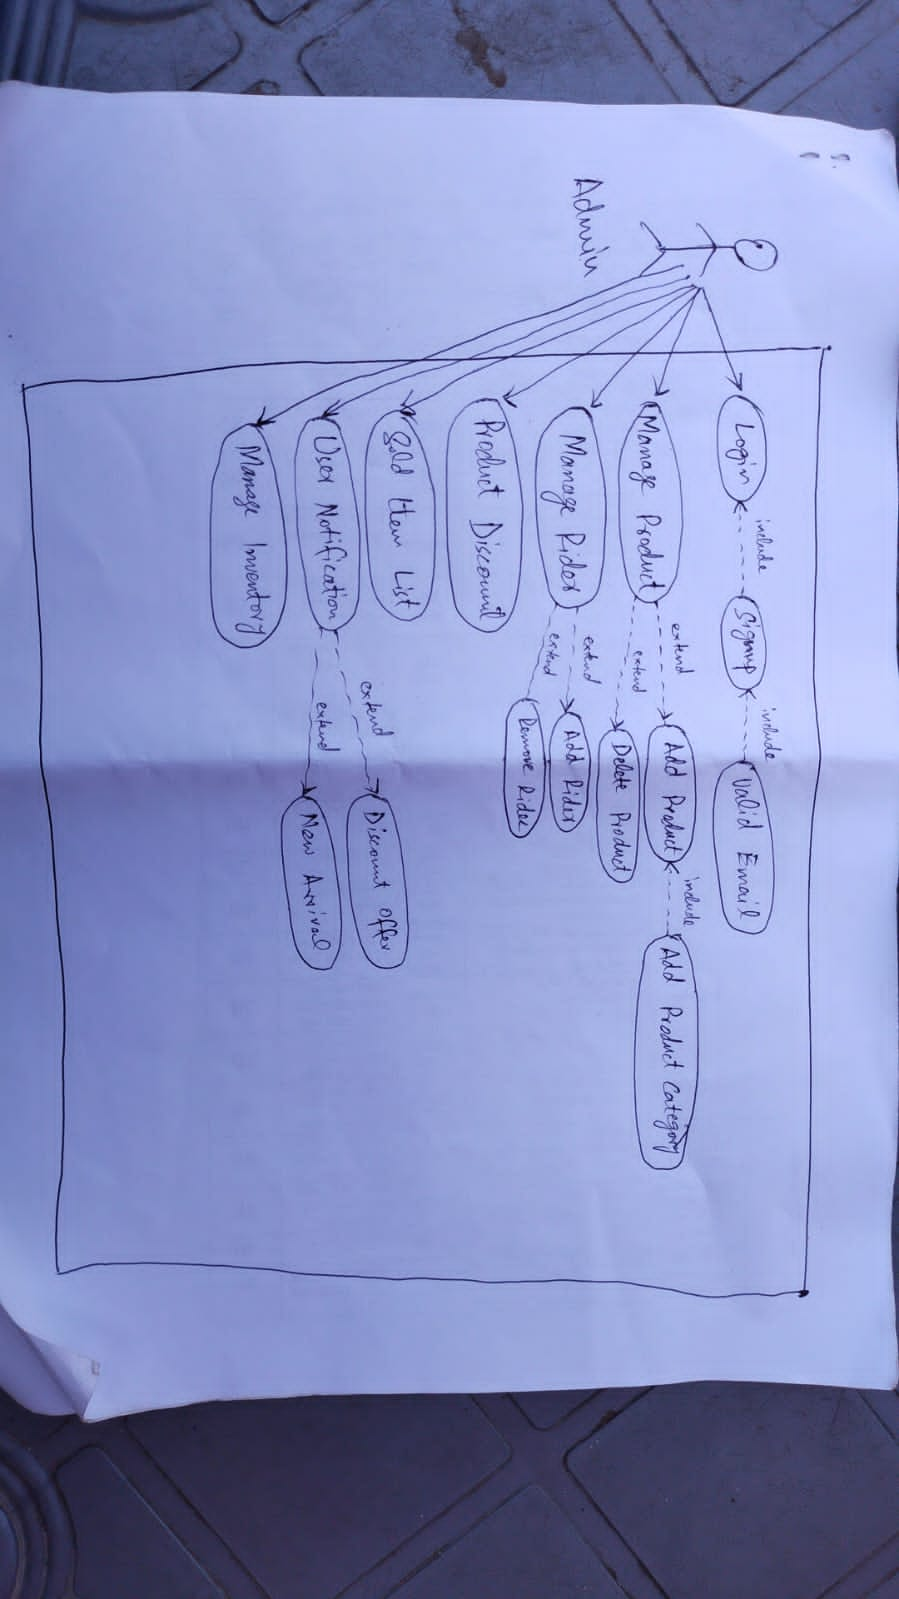 Admin
Login
include
Signup
include
Valid Email
Manage Product
extend
Add Product
include
Add Product Category
extend
Delete Product
Manage Rider
extend
Add Rider
extend
Remove Rider
Product Discount
Sold Item List
User Notification
extend
Discount Offer
extend
New Arrival
Manage Inventory